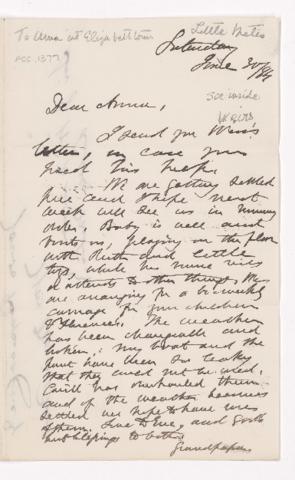 To Anna at Elizabethtown
Little Notes
ACC. 1377
Saturday
June 30/84
see inside
Dear Anna,
I send you
letter, in case you
need his help.
We are getting settled
here and I hope next
week will see us in running
order. Baby is well and
with us, playing on the floor
with Ruth and little
, while his nurse
is attends to other things. We
are arranging for a bi-weekly
carriage for our children
& themselves. The weather
has been changeable and
broken; my boat and the
punt have been so leaky
that they could not be used.
Will has overhauled them
and if the weather becomes
settled we hope to have use
of them. Love to Eve, and God's
best blessings to both
Grandpapa